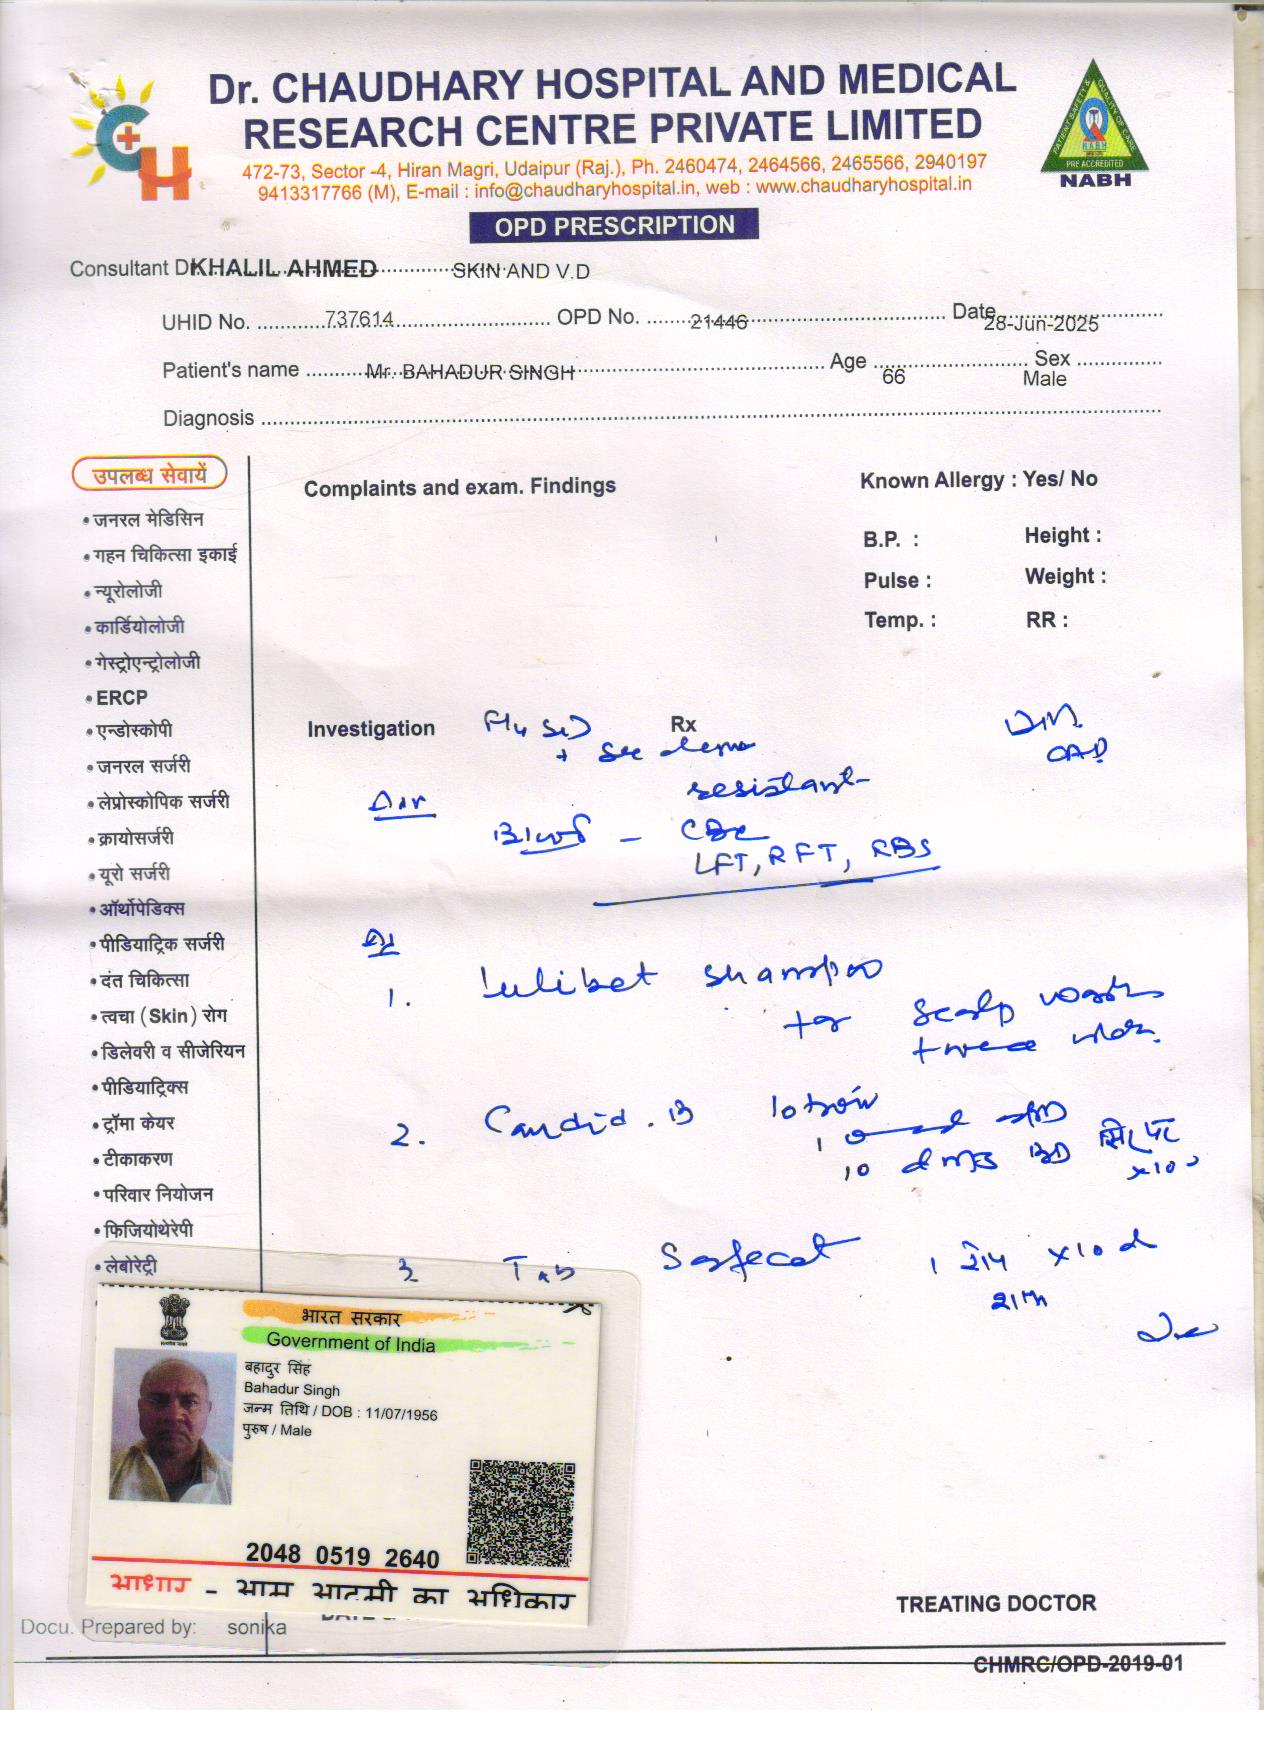 Dr. CHAUDHARY HOSPITAL AND MEDICAL
RESEARCH CENTRE PRIVATE LIMITED
472-73, Sector -4, Hiran Magri, Udaipur (Raj.), Ph. 2460474, 2464566, 2465566, 2940197
9413317766 (M), E-mail : info@chaudharyhospital.in, web : www.chaudharyhospital.in
PATIENT SAFETY & QUALITY OF CARE
NABH
PRE ACCREDITED
NABH
OPD PRESCRIPTION
Consultant Dr. KHALIL AHMED SKIN AND V.D
UHID No. 737614 OPD No. 21446 Date 28-Jun-2025
Patient's name Mr. BAHADUR SINGH Age 66 Sex Male
Diagnosis
उपलब्ध सेवायें
• जनरल मेडिसिन
• गहन चिकित्सा इकाई
• न्यूरोलोजी
• कार्डियोलोजी
• गेस्ट्रोएन्ट्रोलोजी
• ERCP
• एन्डोस्कोपी
• जनरल सर्जरी
• लेप्रोस्कोपिक सर्जरी
• क्रायोसर्जरी
• यूरो सर्जरी
• ऑर्थोपेडिक्स
• पीडियाट्रिक सर्जरी
• दंत चिकित्सा
• त्वचा (Skin) रोग
• डिलेवरी व सीजेरियन
• पीडियाट्रिक्स
• ट्रॉमा केयर
• टीकाकरण
• परिवार नियोजन
• फिजियोथेरेपी
• लेबोरेट्री
Complaints and exam. Findings
Known Allergy : Yes/ No
B.P. : Height :
Pulse : Weight :
Temp. : RR :
Investigation Rx
DM
CAD
resistant
CBC
LFT, RFT, RBS
1. Lulibet shampoo
for scalp wash
twice
2. Candid.B lotion
10 BD
x10
3 Tab 1 रोज x10 d
शाम
भारत सरकार
Government of India
बहादुर सिंह
Bahadur Singh
जन्म तिथि / DOB : 11/07/1956
पुरुष / Male
2048 0519 2640
आधार - आम आदमी का अधिकार
TREATING DOCTOR
Docu. Prepared by: sonika
CHMRC/OPD-2019-01